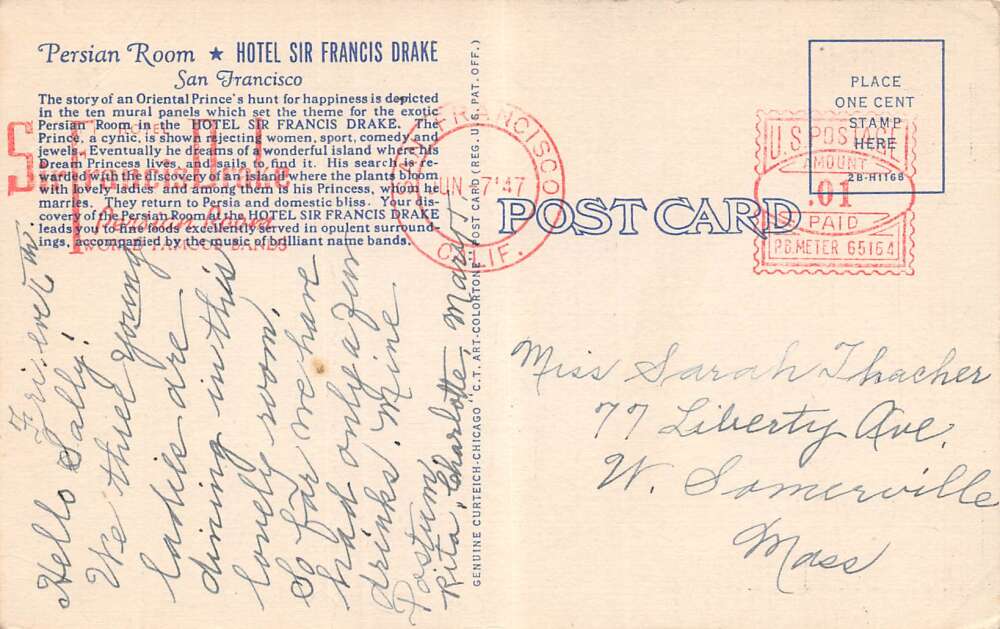 Persian Room ★ HOTEL SIR FRANCIS DRAKE
San Francisco
The story of an Oriental Prince's hunt for happiness is depicted
in the ten mural panels which set the theme for the exotic
Persian Room in the HOTEL SIR FRANCIS DRAKE. The
Prince, a cynic, is shown rejecting women, sport, comedy and
jewels. Eventually he dreams of a wonderful island where his
Dream Princess lives, and sails to find it. His search is re-
warded with the discovery of an island where the plants bloom
with lovely ladies, and among them is his Princess, whom he
marries. They return to Persia and domestic bliss. Your dis-
covery of the Persian Room at the HOTEL SIR FRANCIS DRAKE
leads you to fine foods excellently served in opulent surround-
ings, accompanied by the music of brilliant name bands.
HOTEL
Sir Francis Drake
SAN FRANCISCO
JUN 7 '47
CALIF.
U.S. POSTAGE
AMOUNT
.01
PAID
P.B. METER 65164
PLACE
ONE CENT
STAMP
HERE
2B-H1168
POST CARD
GENUINE CURTEICH-CHICAGO "C.T. ART-COLORTONE" POST CARD (REG. U.S. PAT. OFF.)
Fri. eve
Hello Sally!
We three young
ladies are
dining in this
lovely room.
So far we have
had only a few
drinks. Mine
Postum
Rita, Charlotte,
Miss Sarah Thacher
77 Liberty Ave.
W. Somerville
Mass